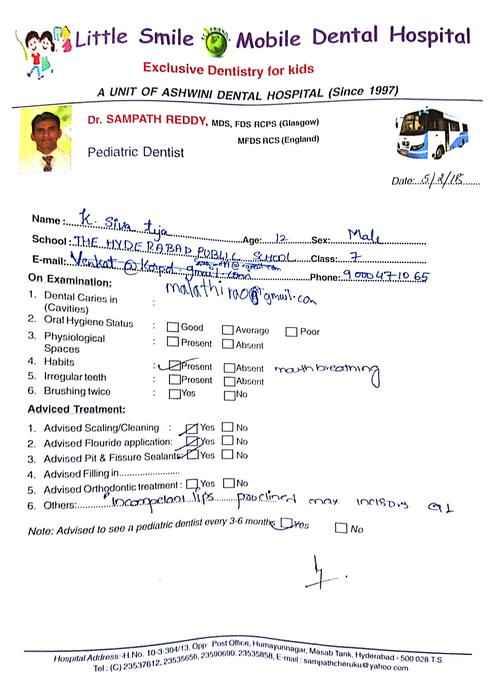 Little Smile Mobile Dental Hospital
Exclusive Dentistry for kids
A UNIT OF ASHWINI DENTAL HOSPITAL (Since 1997)
Dr. SAMPATH REDDY, MDS, FDS RCPS (Glasgow)
MFDS RCS (England)
Pediatric Dentist
Date: 5/2/18
Name: K. Siva teja Age: 12 Sex: Male
School: THE HYDERABAD PUBLIC SCHOOL Class: 7
E-mail: Phone: 9000471065
malathirao@gmail.con
On Examination:
1. Dental Caries in :
(Cavities)
2. Oral Hygiene Status : Good Average Poor
3. Physiological : Present Absent
Spaces
4. Habits : Present Absent mouth breathing
5. Irregular teeth : Present Absent
6. Brushing twice : Yes No
Adviced Treatment:
1. Advised Scaling/Cleaning : Yes No
2. Advised Flouride application: Yes No
3. Advised Pit & Fissure Sealants: Yes No
4. Advised Filling in...................
5. Advised Orthodontic treatment : Yes No
6. Others: Incompetent lips proclined
Note: Advised to see a pediatric dentist every 3-6 months Yes No
Hospital Address -H.No. 10-3-304/13, Opp: Post Office, Humayunnagar, Masab Tank, Hyderabad - 500 028 T.S.
Tel : (C) 23537612, 23535656, 23590690, 23535858, E-mail : sampathcheruku@yahoo.com